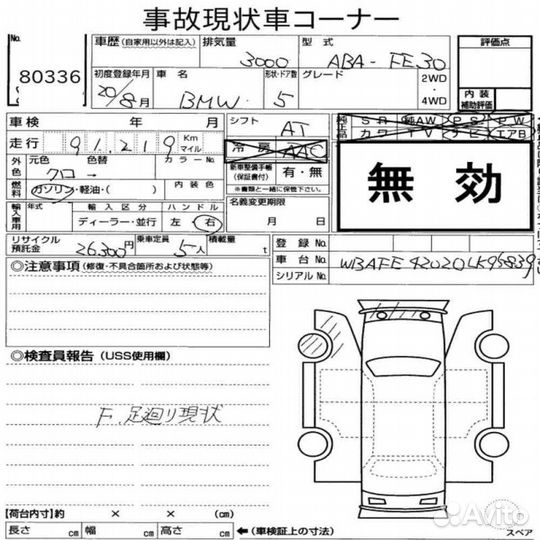 事故現状車コーナー
No.
80336
車歴 (自家用以外は記入) 排気量 3000 型式 ABA-FE30
初度登録年月 20/8月 車名 BMW 形状・ドア数 5 グレード 2WD ・ 4WD
評価点
内装 補助評価
車検 年 月 シフト AT
走行 91,219 Km マイル 冷房 AAC
純正品 SR 純AW PS PW
カワ TV ナビ エアB
外色 元色 クロ 色替 カラーNo. 新車整備手帳 (保証書付) 有・無
燃料 ガソリン・軽油・( ) 内装色 ※書類と一緒に保管下さい。
無効
輸入車用 年式 輸入区分 ディーラー・並行 ハンドル 左・右 名義変更期限 月 日
リサイクル預託金 26,300円 乗車定員 5人 積載量 t
登録No.
車台No. WBAFE42020LK95839
シリアルNo.
◎注意事項 (修復・不具合箇所および状態等)
◎検査員報告 (USS使用欄)
F.足廻り現状
【荷台内寸】約 × × (cm)
長さ cm 幅 cm 高さ cm ← (車検証上の寸法)
スペア
Avito